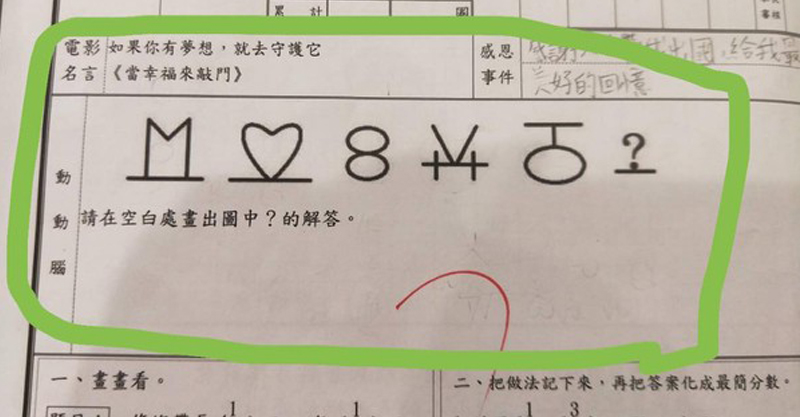 累計
電影 如果你有夢想，就去守護它
名言 《當幸福來敲門》
感恩
事件
感謝
出國，給我最
美好的回憶
動動腦
?
請在空白處畫出圖中？的解答。
一、畫畫看。
二、把做法記下來，再把答案化成最簡分數。